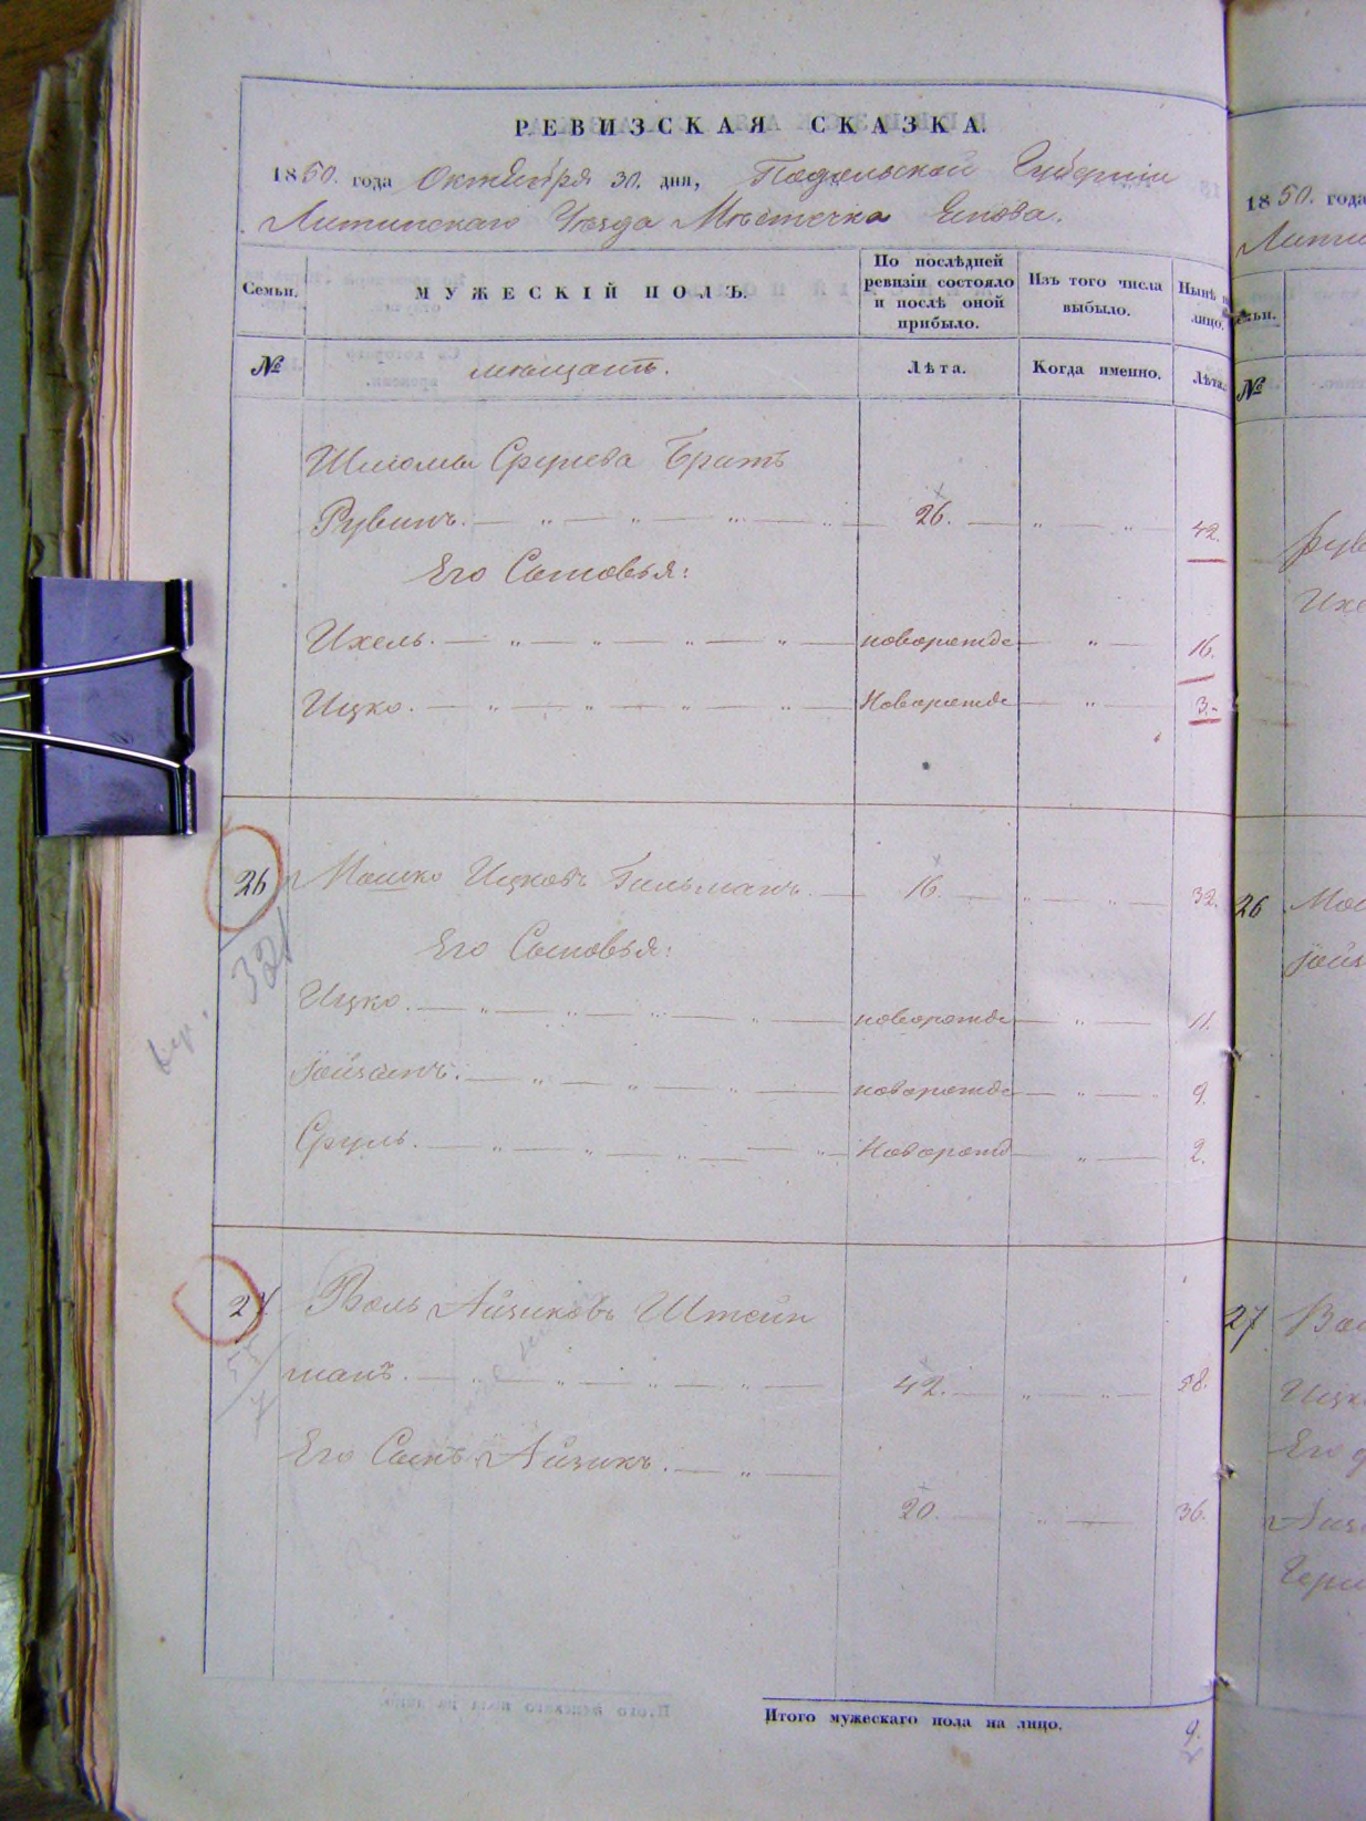 РЕВИЗСКАЯ СКАЗКА.
1850. года Октября 30. дня, Подольской Губернии
Литинскаго Уѣзда Мѣстечка Янова.
Семьи.
МУЖЕСКІЙ ПОЛЪ.
По послѣдней ревизіи состояло и послѣ оной прибыло.
Изъ того числа выбыло.
Нынѣ на лицо.
№
мѣщанъ.
Лѣта.
Когда именно.
Лѣта.
Шліомы Сруля Братъ
Рувинъ. 26. 42.
Его Сыновья:
Ихель. новорожде 16.
Ицко. Новорожде 3.
26 Мошко Ицковъ Гильманъ. 16. 32.
321
Его Сыновья:
Ицко. новорожде 11.
Іойсипъ. новорожде 9.
Сруль. Новорожд 2.
27. Воль Айзиковъ Штейн
манъ. 42. 58.
Его Сынъ Айзикъ.
20. 36.
Итого мужескаго пола на лицо. 9.
1850. года
Лити
№
Рув
Ихе
26 Мос
Іойз
27 Вол
Ицк
Его
Айз